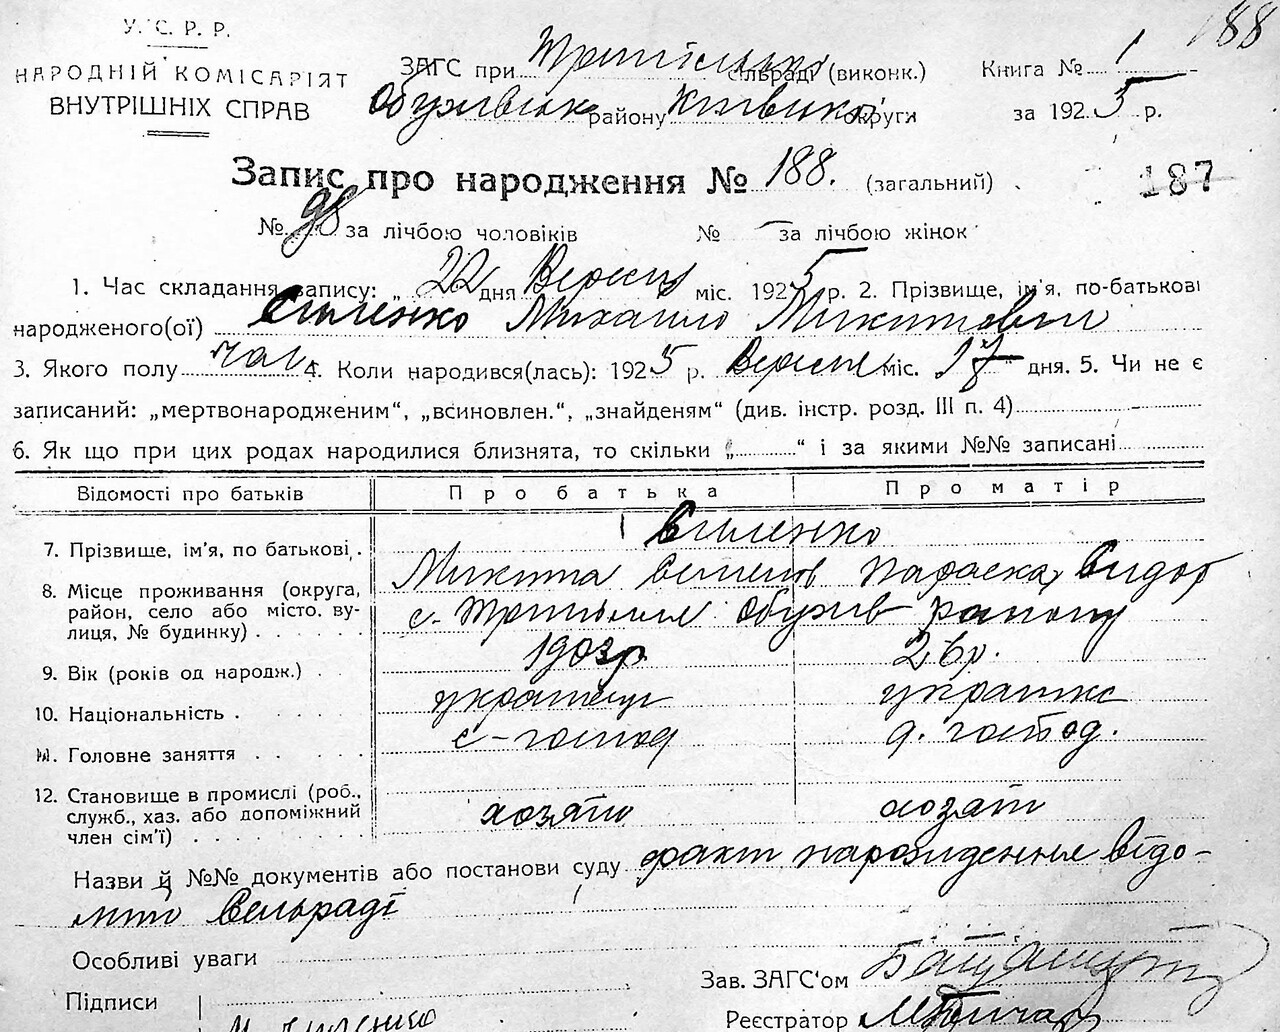 188
У. С. Р. Р.
НАРОДНІЙ КОМІСАРІЯТ
ВНУТРІШНІХ СПРАВ
ЗАГС при Трипільській сільраді (виконк.) Книга № 1
району округи за 1925 р.
Запис про народження № 188. (загальний)
187
№ 98 за лічбою чоловіків № — за лічбою жінок
1. Час складання запису: „ 22 дня Вересня міс. 1925 р. 2. Прізвище, ім'я, по-батькові
народженого(ої) Михайло Микитович
3. Якого полу чол 4. Коли народився(лась): 1925 р. Вересня міс. 17 дня. 5. Чи не є
записаний: „мертвонародженим“, „всиновлен.“, „знайденям“ (див. інстр. розд. III п. 4)
6. Як що при цих родах народилися близнята, то скільки „ “ і за якими №№ записані
Відомості про батьків Про батька Про матір
7. Прізвище, ім'я, по батькові
Микита Семенов Параска
8. Місце проживання (округа, район, село або місто. вулиця, № будинку) с. Трипілля Обухів району
9. Вік (років од народж.) 1903р. 26р.
10. Національність українець українка
11. Головне заняття с-господ д. господ.
12. Становище в промислі (роб., служб., хаз. або допоміжний член сім'ї) хозяїн
Назви й №№ документів або постанови суду факт народження відо-
мий сельраді
Особливі уваги
Зав. ЗАГС'ом
Підписи
Реєстратор